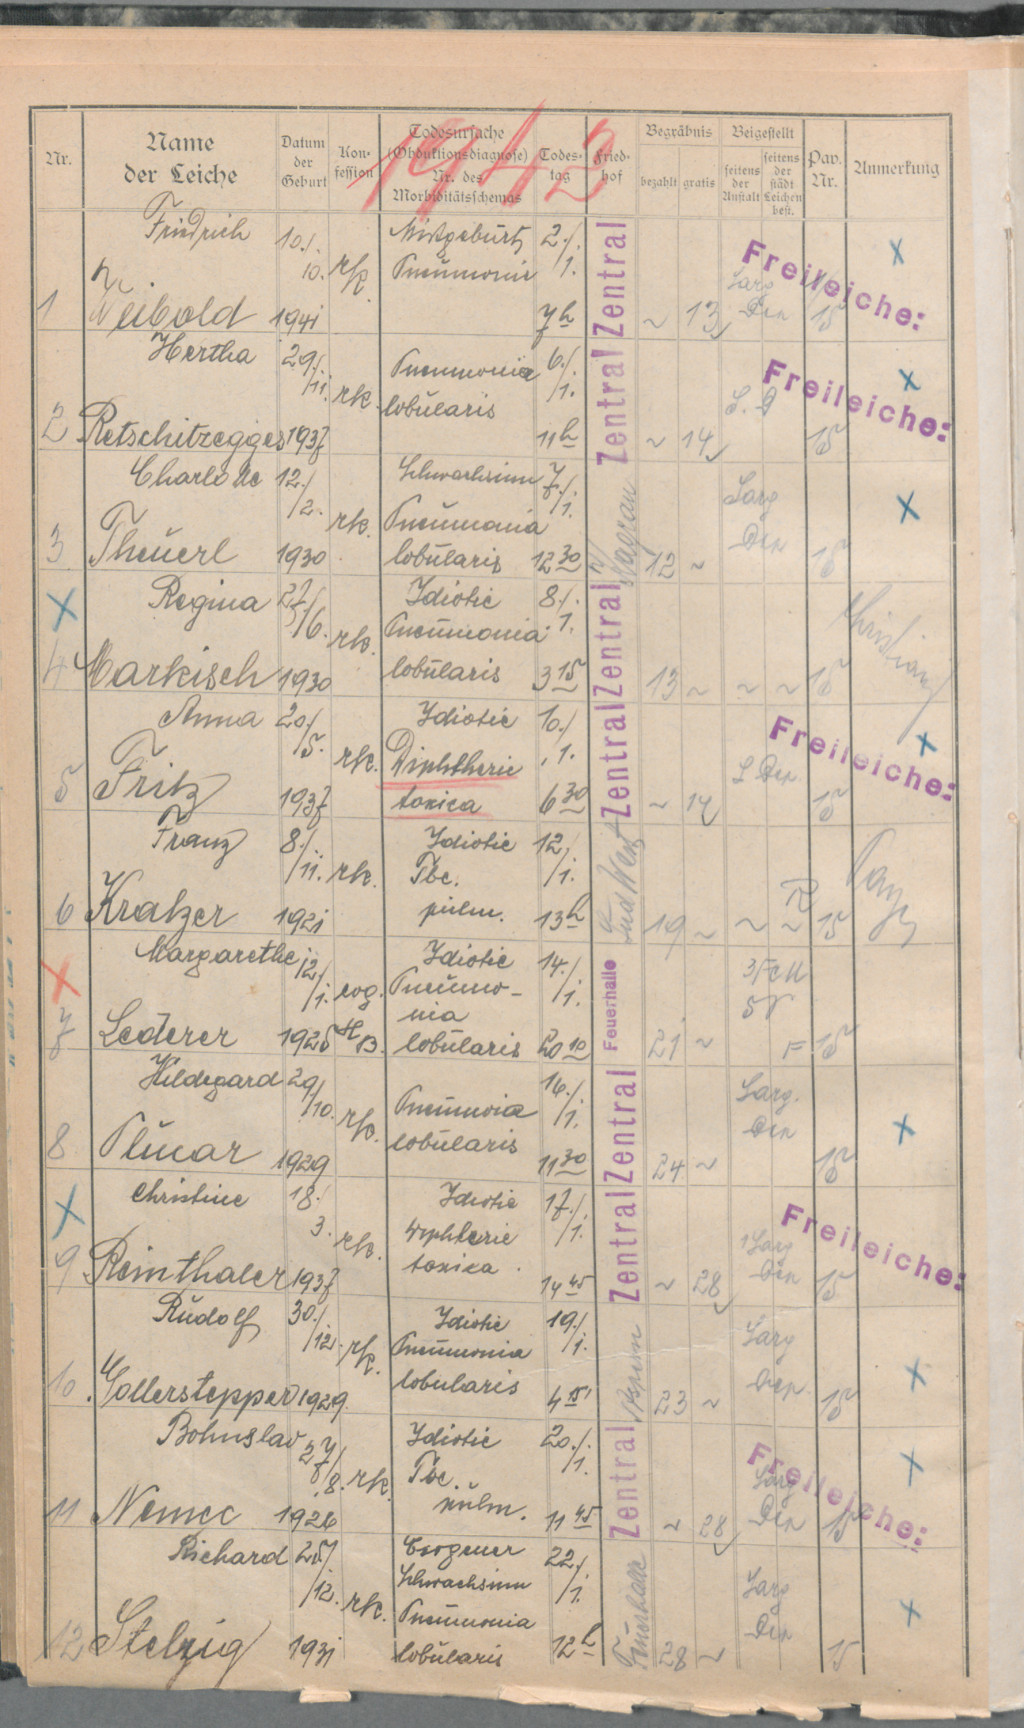 1943
Nr.
Name
der Leiche
Datum
der
Geburt
Kon-
fession
Todesursache
(Obduktionsdiagnose)
Nr. des
Morbiditätsschemas
Todes-
tag
Fried-
hof
Begräbnis
bezahlt gratis
Beigestellt
seitens
der
Anstalt
seitens
der
städt
Leichen
best.
Pav.
Nr.
Anmerkung
Friedrich 10./ Missgeburt, 2./.
10. rk. Pneumonie 1. Zentral Freileiche:
1 Weibold 1941 7h ~ 13 15
Hertha 29./ Pneumonie 6./.
11. rk. lobularis 1. Zentral Freileiche:
2 Retschitzegger 1937 11h ~ 14 15
Charlotte 12./ Schwachsinn 7./. Sarg
2. rk. Pneumonia 1.
3 Theuerl 1930 lobularis 12 30 12 ~ 15
Regina 27/ Idiotie 8./.
6. rk. Pneumonia 1. Zentral
4 Markisch 1930 lobularis 3 15 13 ~ ~ ~ 15
Anna 20./ Idiotie 10./
5. rk. Diphtherie 1. Zentral Freileiche:
5 Fritz 1937 toxica 6 30 ~ 14 15
Franz 8./ Idiotie 12./
11. rk. Tbc. 1.
6 Kratzer 1921 pulm. 13h 19 ~ ~ ~ 15
Margarethe 12./ Idiotie 14./.
1. Pneumo- 1. Feuerhalle
nia
7 Lederer 1925 lobularis 20 10 21 ~ 15
Hildegard 29/ 16./. Sarg.
10. rk. Pneumonia 1. Zentral
lobularis
8 Plucar 1929 11 30 24 ~ 15
Christine 18./ Idiotie 17./.
3. rk. Diphterie 1. Zentral Freileiche:
toxica.
9 Reinthaler 1937 14 45 ~ 28 15
Rudolf 30./ Idiotie 19./ Sarg
12. rk. Pneumonia 1.
10 Gollerstepper 1929 lobularis 4 15 23 ~ 15
Bohuslav 27/ Idiotie 20./.
8. rk. Tbc. 1. Zentral Freileiche:
11 Nemec 1926 pulm. 11 45 ~ 28 15
Richard 25/ 22./.
12. rk. Schwachsinn 1. Feuerhalle Sarg
Pneumonia
12 Stelzig 1931 lobularis 12h 28 ~ 15